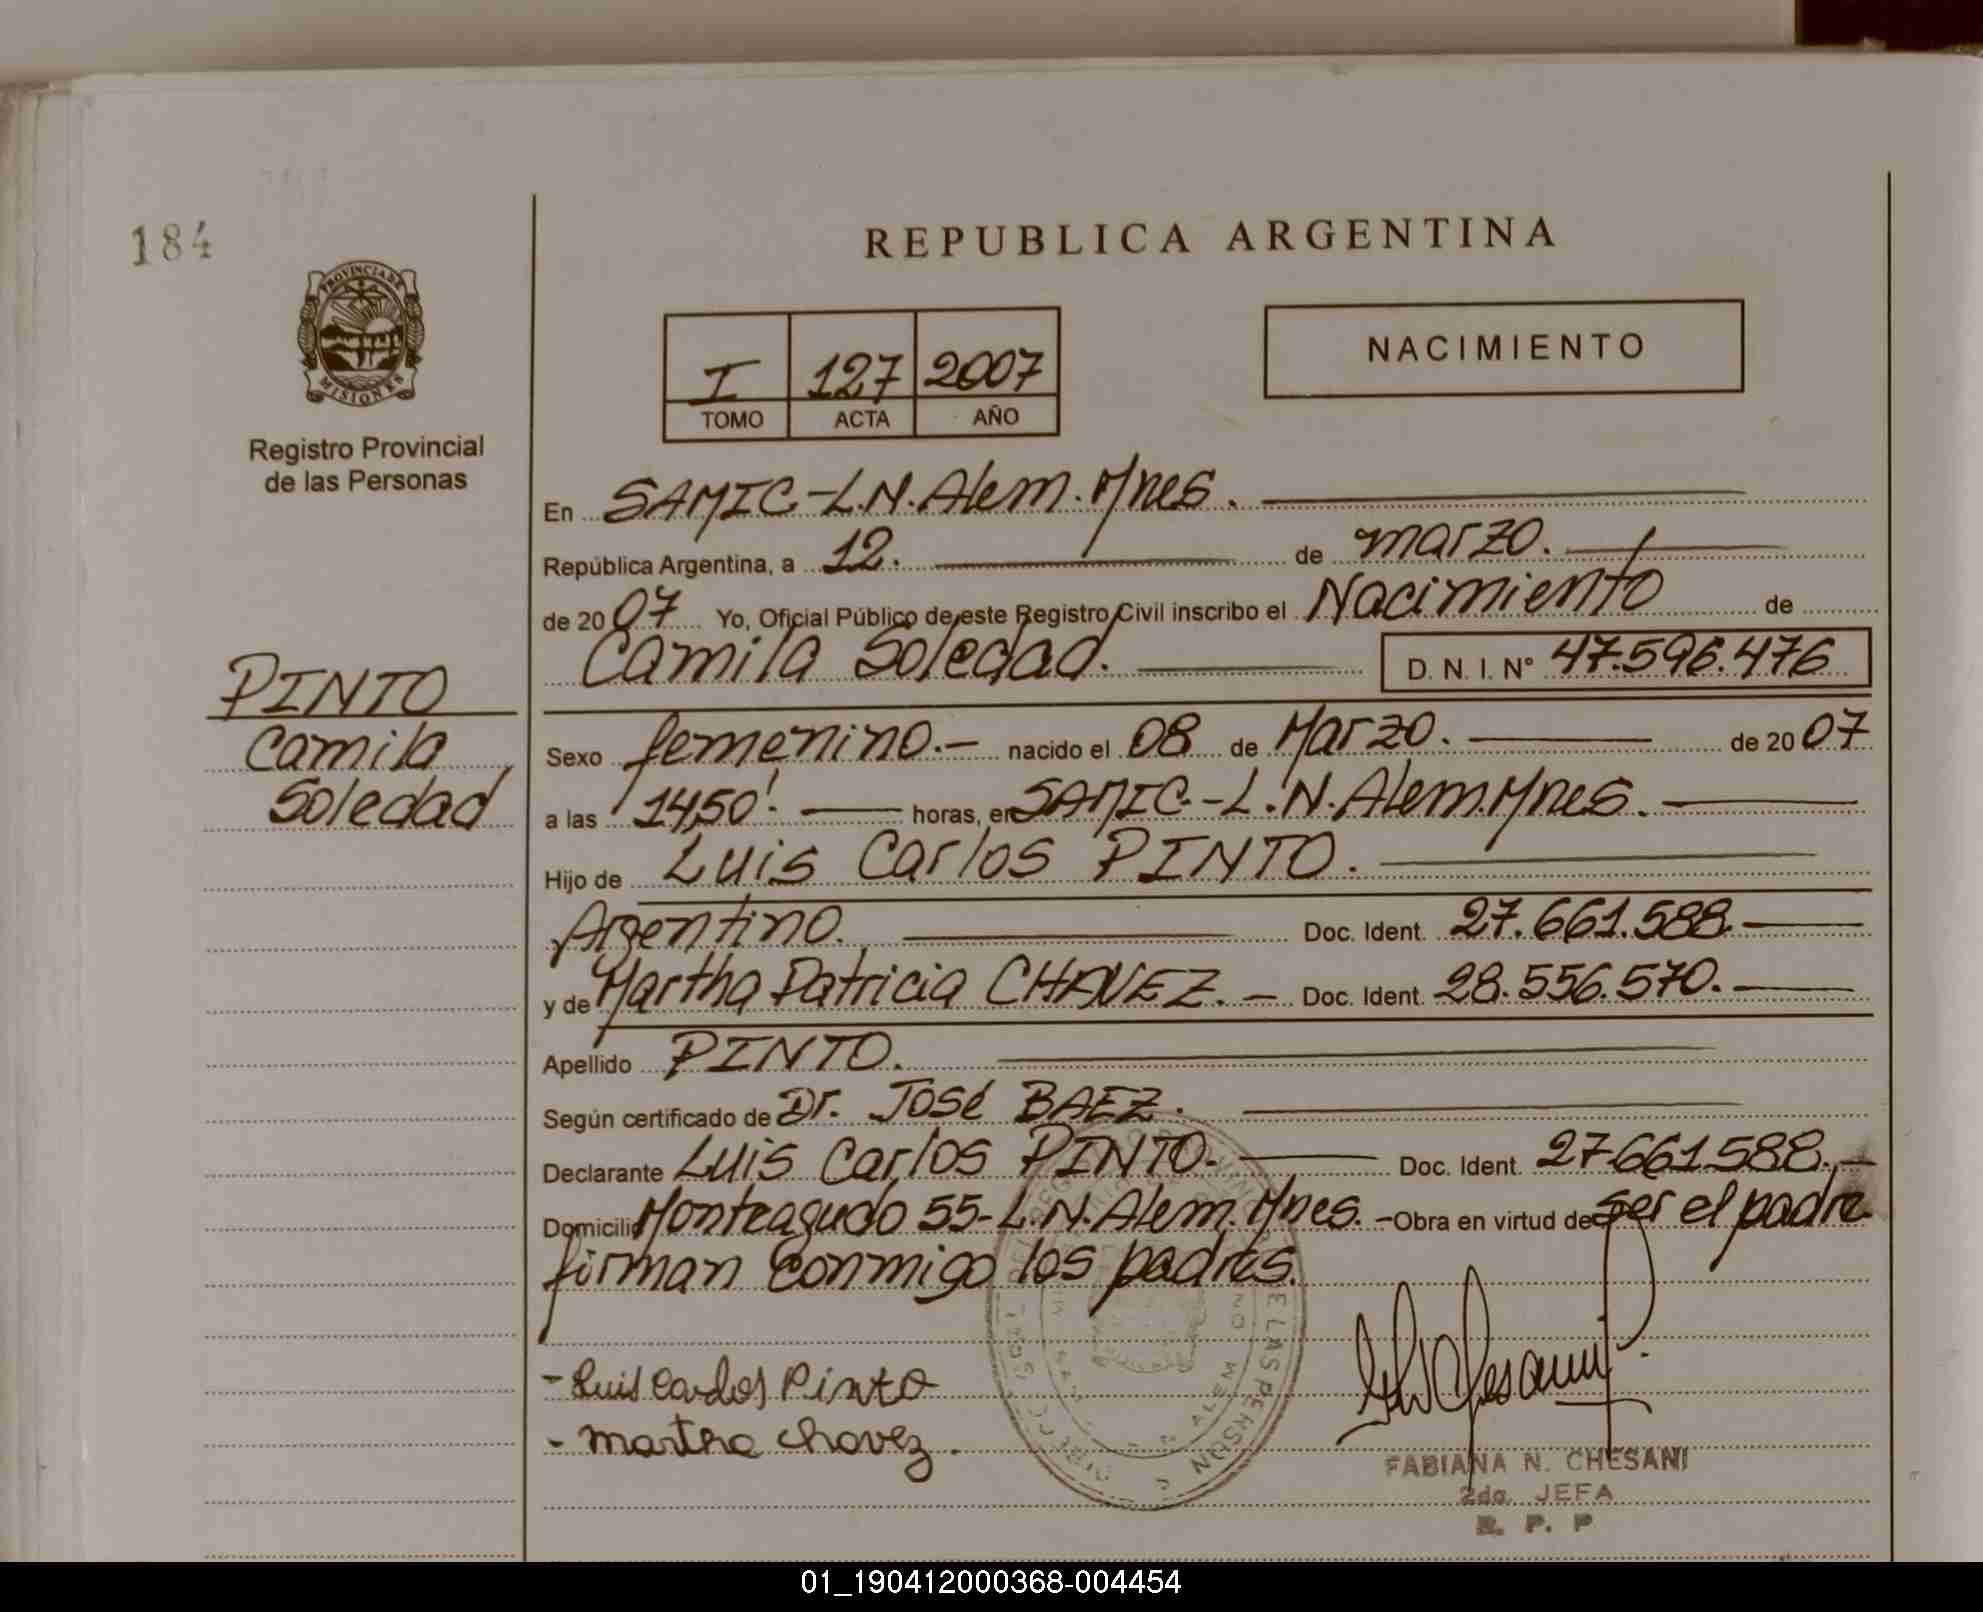 184
PROVINCIA DE
MISIONES
Registro Provincial
de las Personas
REPUBLICA ARGENTINA
I 127 2007
TOMO ACTA AÑO
NACIMIENTO
En SAMIC-L.N.Alem.Mnes.
República Argentina, a 12. de marzo.
de 2007 Yo, Oficial Público de este Registro Civil inscribo el Nacimiento de
Camila Soledad. D. N. I. N° 47.596.476
PINTO
Camila
Soledad
Sexo femenino.- nacido el 08 de Marzo. de 2007
a las 14,50'. horas, en SAMIC.-L.N.Alem.Mnes.
Hijo de Luis Carlos PINTO.
Argentino. Doc. Ident. 27.661.588.
y de Martha Patricia CHAVEZ. - Doc. Ident. 28.556.570.
Apellido PINTO.
Según certificado de Dr. José BAEZ.
Declarante Luis Carlos PINTO. Doc. Ident. 27.661.588.-
Domicilio Monteagudo 55-L.N.Alem.Mnes. -Obra en virtud de ser el padre
firman conmigo los padres.
- Luis Carlos Pinto
- martha chavez.
FABIANA N. CHESANI
2da. JEFA
R. P. P
01_190412000368-004454